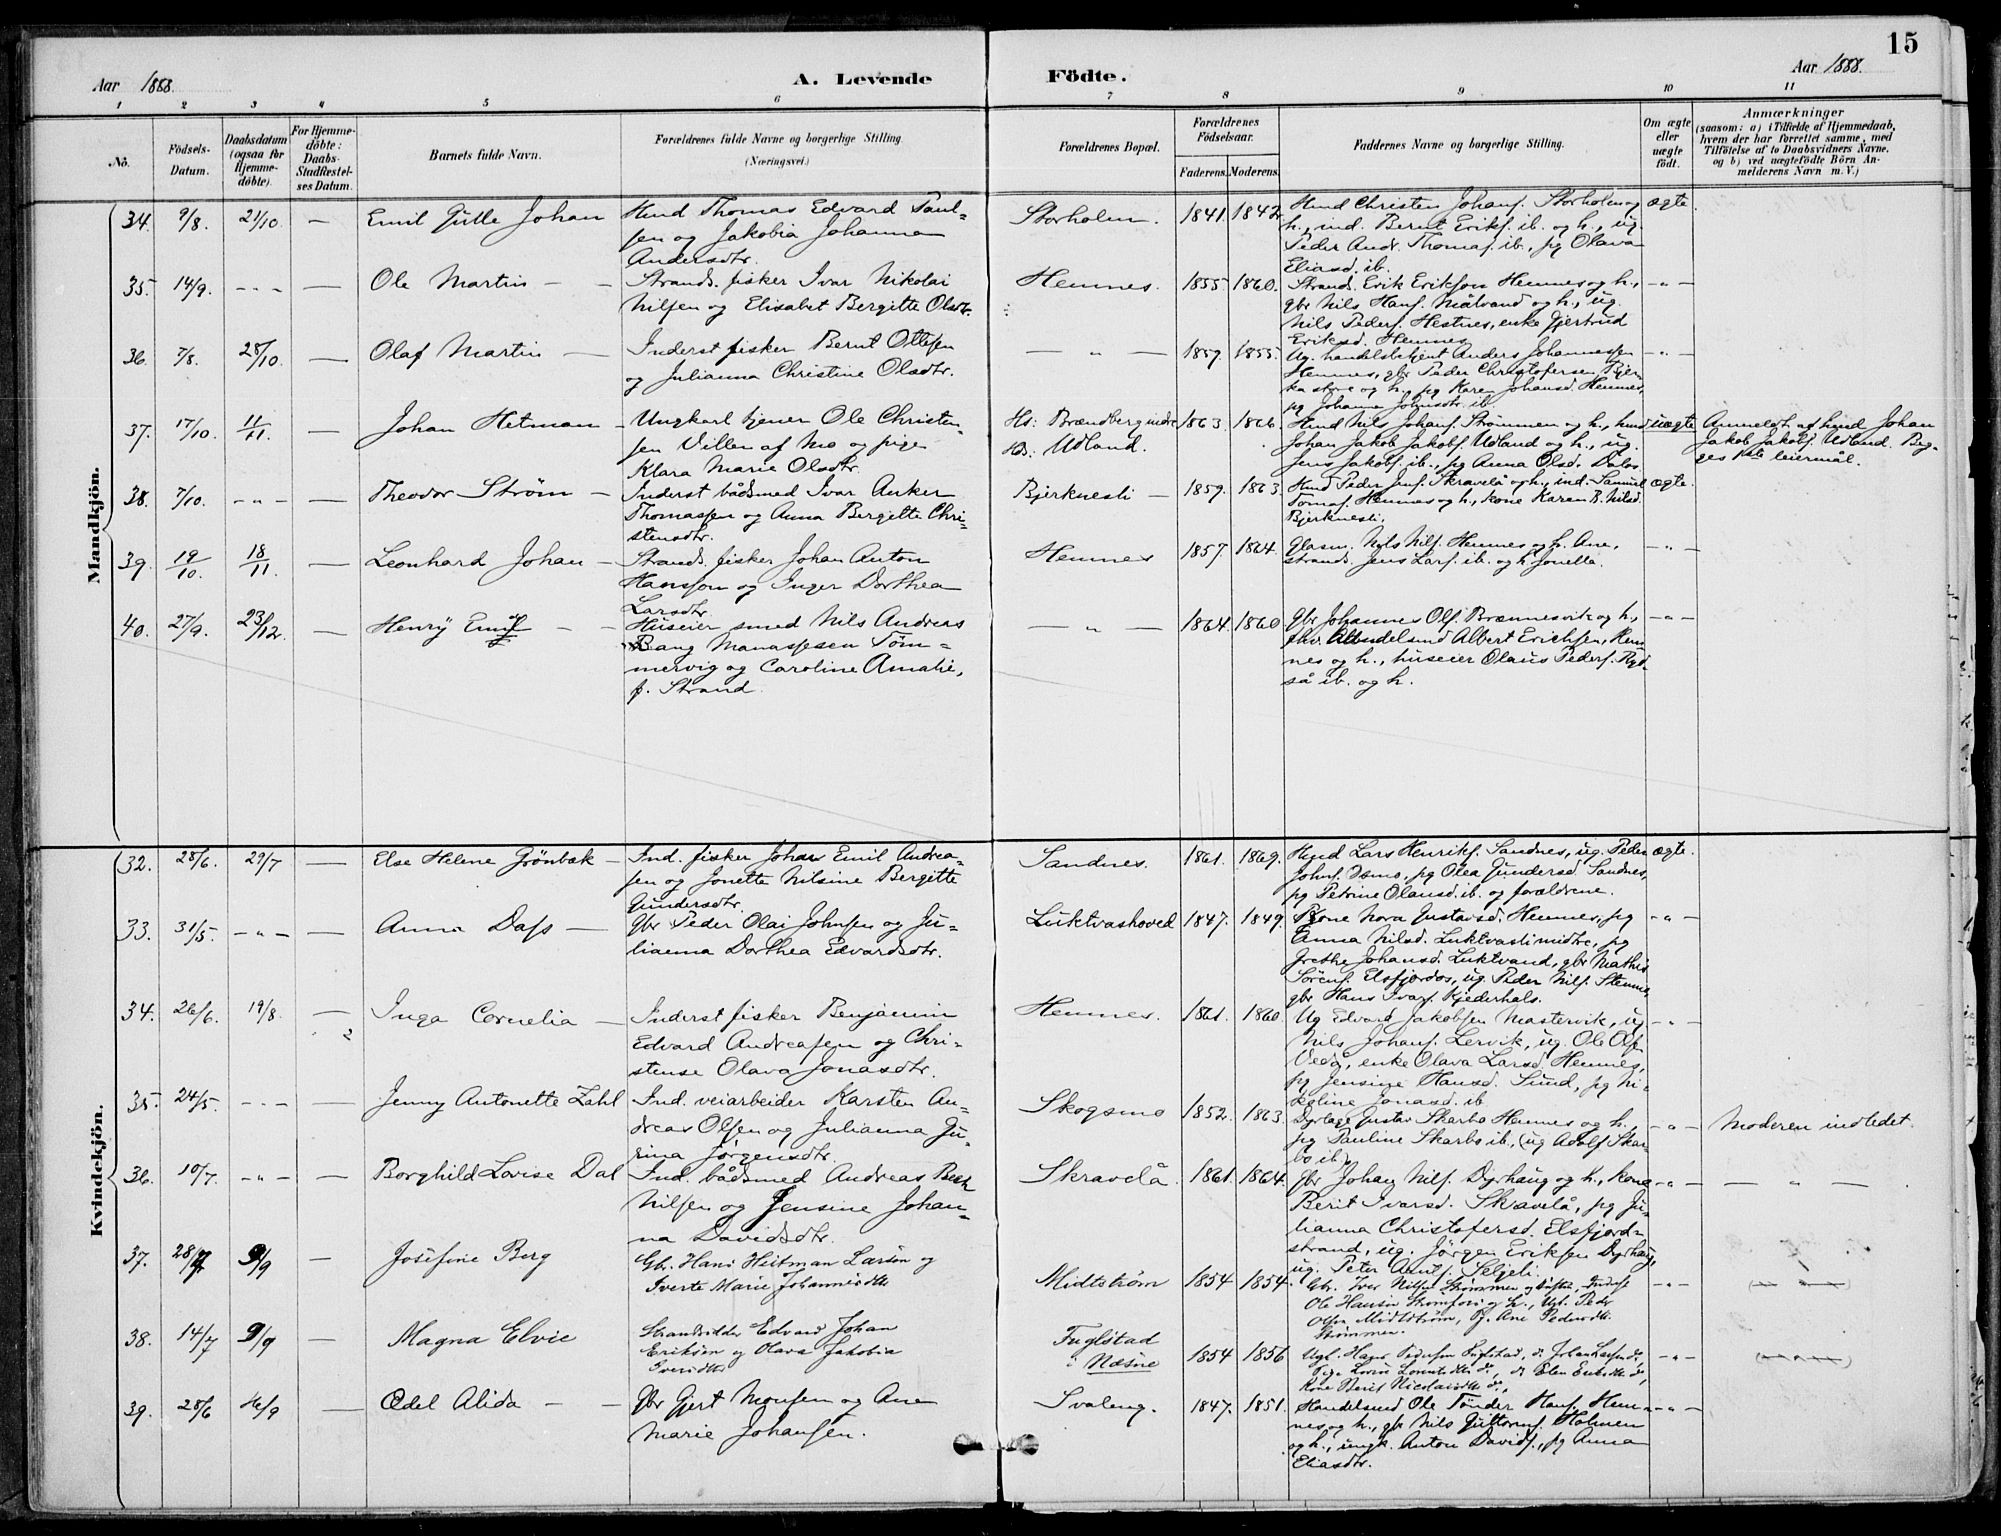 15
Aar 1888.
A. Levende Födte.
Aar 1888.
1 2 3 4 5 6 7 8 9 10 11
No.
Födsels-
Datum.
Daabsdatum
(ogsaa for
Hjemme-
döbte).
For Hjemme-
döbte:
Daabs-
Stadfæstel-
ses Datum.
Barnets fulde Navn.
Forældrenes fulde Navne og borgerlige Stilling.
(Næringsvei.)
Forældrenes Bopæl.
Forældrenes
Födselsaar.
Faderens. Moderens.
Faddernes Navne og borgerlige Stilling.
Om ægte
eller
uægte
født.
Anmærkninger
(saasom: a) i Tilfælde af Hjemmedaab,
hvem der har forrettet samme, med
Tilföielse af to Daabsvidners Navne,
og b) ved uægtefödte Börn An-
melderens Navn m. V.)
Mandkjön.
34. 9/8. 21/10. — Emil Gulle Johan
Hmd Thomas Edvard Paul-
sen og Jakobia Johanna
Andersdtr.
Storholm. 1841. 1842.
Hmd Christen Johans. Storholm og
h., ind. Bernt Eriks. ib. og h., ug.
Peder Andr. Thomas. ib., pg Olava
Eliasd. ib.
ægte.
35. 14/9. - - - — Ole Martin — —
Strands. fisker Ivar Nikolai
Nilsen og Elisabet Bergitte Olsdtr.
Hemnes. 1855 1860.
Strands. Erik Erikson Hemnes og h.,
gbr Nils Hans. Målvand og h., ug.
Nils Peders. Hestnes, enke Gjertrud
Eriksd. Hemnes
— „ —
36. 7/8. 28/10. — Olaf Martin —
Inderst fisker Bernt Ottesen
og Julianna Christine Olsdtr.
— „ — 1859. 1855.
Ug. handelsbetjent Anders Johannessen
Hemnes, gbr Peder Christofersen Bjer-
ka store og h., pg Karen Johansd. Hemnes,
pg Johanna Johnsdtr. ib.
— „ —
37. 17/10. 11/11. — Johan Hetman —
Ungkarl tjener Ole Christen-
sen Villen af Mo og pige
Klara Marie Olsdtr.
Hs: Brændberg indre
Ks: Utland.
1863 1866.
Hmd Nils Johans. Strømmen og h., hmd
Johan Jakob Jakobs. Utland og h., ug.
Jens Jakobs. ib., pg Anna Olsd. Dalos
uægte
Anmeldt af hmd Johan
Jakob Jakobs. Utland. Beg-
ges 1ste leiermål.
38. 7/10. - „ - — Theodor Strøm —
Inderst bådsmed Ivar Anker
Thomassen og Anna Bergitte Chri-
stensdtr.
Bjerknesli — 1859. 1863.
Hmd Peder Jens. Skravelå og h., ind. Samuel
Tomas. Hemnes og h., kone Karen B. Nilsd.
Bjerknesli.
ægte.
39. 19/10. 18/11. — Leonhard Johan —
Strands. fisker Johan Anton
Hansson og Inger Dorthea
Larsdtr.
Hemnes 1857. 1864.
Glasm. Nils Nils. Hemnes og h. Ane,
strands. Jens Lars. ib. og h. Jonetta.
— „ —
40. 27/9. 23/12. — Henry Emil — —
Huseier smed Nils Andreas
Bang Manassesen Töm-
mervig og Caroline Amalie,
f. Strand.
— „ — 1864. 1860.
Gbr Johannes Ols. Brennesvik og h.,
fhv. Handelsmd Albert Erichsen, Hem-
nes og h., huseier Olaus Peders. Ryd-
så ib. og h.
— „ —
Kvindekjön.
32. 28/6. 29/7 — Else Helene Grönbæk —
Ind. fisker Johan Emil Andrea-
sen og Jonette Nilsine Bergitte
Gundersdtr.
Sandnes. 1861. 1869.
Hmd Lars Henriks. Sandnes, ug. Peder
Johns. Osmo, pg Olea Gundersd. Sandnes,
pg Petrine Olausd. ib. og forældrene.
ægte.
33. 31/5. - „ - — Anna Dass —
Gbr Peder Olai Johnsen og Ju-
lianna Dorthea Edvardsdtr.
Luktvashoved 1847. 1849.
Kone Nora Gustavsd. Hemnes, pg
Anna Nilsd. Luktvaslimidtre, pg
Grethe Johansd. Luktvand, gbr Mathis
Sörens. Elsfjordos, ug. Peder Nils. Stenne,
gbr Hans Ivars. Kjederhals.
— „ —
34. 26/6. 19/8. — Inga Cornelia —
Inderst fisker Benjamin
Edvard Andreasen og Chri-
stense Olava Jonasdtr.
Hemnes. 1861. 1860.
Ug Edvard Jakobsen Mastervik, ug.
Nils Johans. Lervik, ug. Ole Ols.
Vedå, enke Olava Larsd. Hemnes,
pg Jensine Hansd. Sund, pg Ni-
koline Jonasd. ib
— „ —
35. 24/5. - - - — Jenny Antonette Zahl
Ind. veiarbeider Karsten An-
dreas Olsen og Julianna Ju-
rina Jørgensdtr.
Skogsmo 1852. 1863.
Dyrlæge Gustav Skarbo Hemnes og h.,
pg Pauline Skarbo ib., (ug Adolf Skar-
bo ib.)
— „ —
Moderen indledet.
36. 10/7. - „ - — Borghild Lovise Dal
Ind. bådsmed Andreas Beck
Nilsen og Jensine Johan-
na Davidsdtr.
Skravelå 1861. 1864.
Gbr Johan Nils. Dyrhaug og h., kone
Berit Ivarsd. Skravelå, pg Ju-
lianna Christofersd. Elsfjord-
strand, ug. Jörgen Eriksen Dyrhaug,
ug. Peter Arnts. Seljeli.
— „ —
— „ —
37. 28/7. 9/9 — Josefine Berg
Gbr. Hans Heitman Larsen og
Sverte Marie Johannisdtr
Midtstrøm 1854 1854.
Gbr. Iver Nilsen Strømmen og Hustru, Inderst
Ole Hansen Stromfors og h., Ugk. Peder
Olsen Midtstrøm, Pg. Ane Pedersdtr.
Strømmen.
— „ —
38. 14/7 9/9 — Magna Elvie
Strandsidder Edvard Johan
Eriksen og Olava Jakobia
Iversdtr
Fuglstad
i Næsne
1854 1856
Ugl. Hans Pedersen Fuglstad, do Johan Larsen do,
Kone Berit Nicolaisdtr do,
— „ —
39. 28/6 16/9 — Ædel Alida — —
Gbr Gjert Monsen og Ane
Marie Johansen.
Svaleng. 1847. 1851.
Handelsmd Ole Tönder Hans. Hem-
nes og h., gbr Nils Guttorms. Holmen
og h., ungk. Anton Davids., pg Anna
Eliasdtr.
— „ —